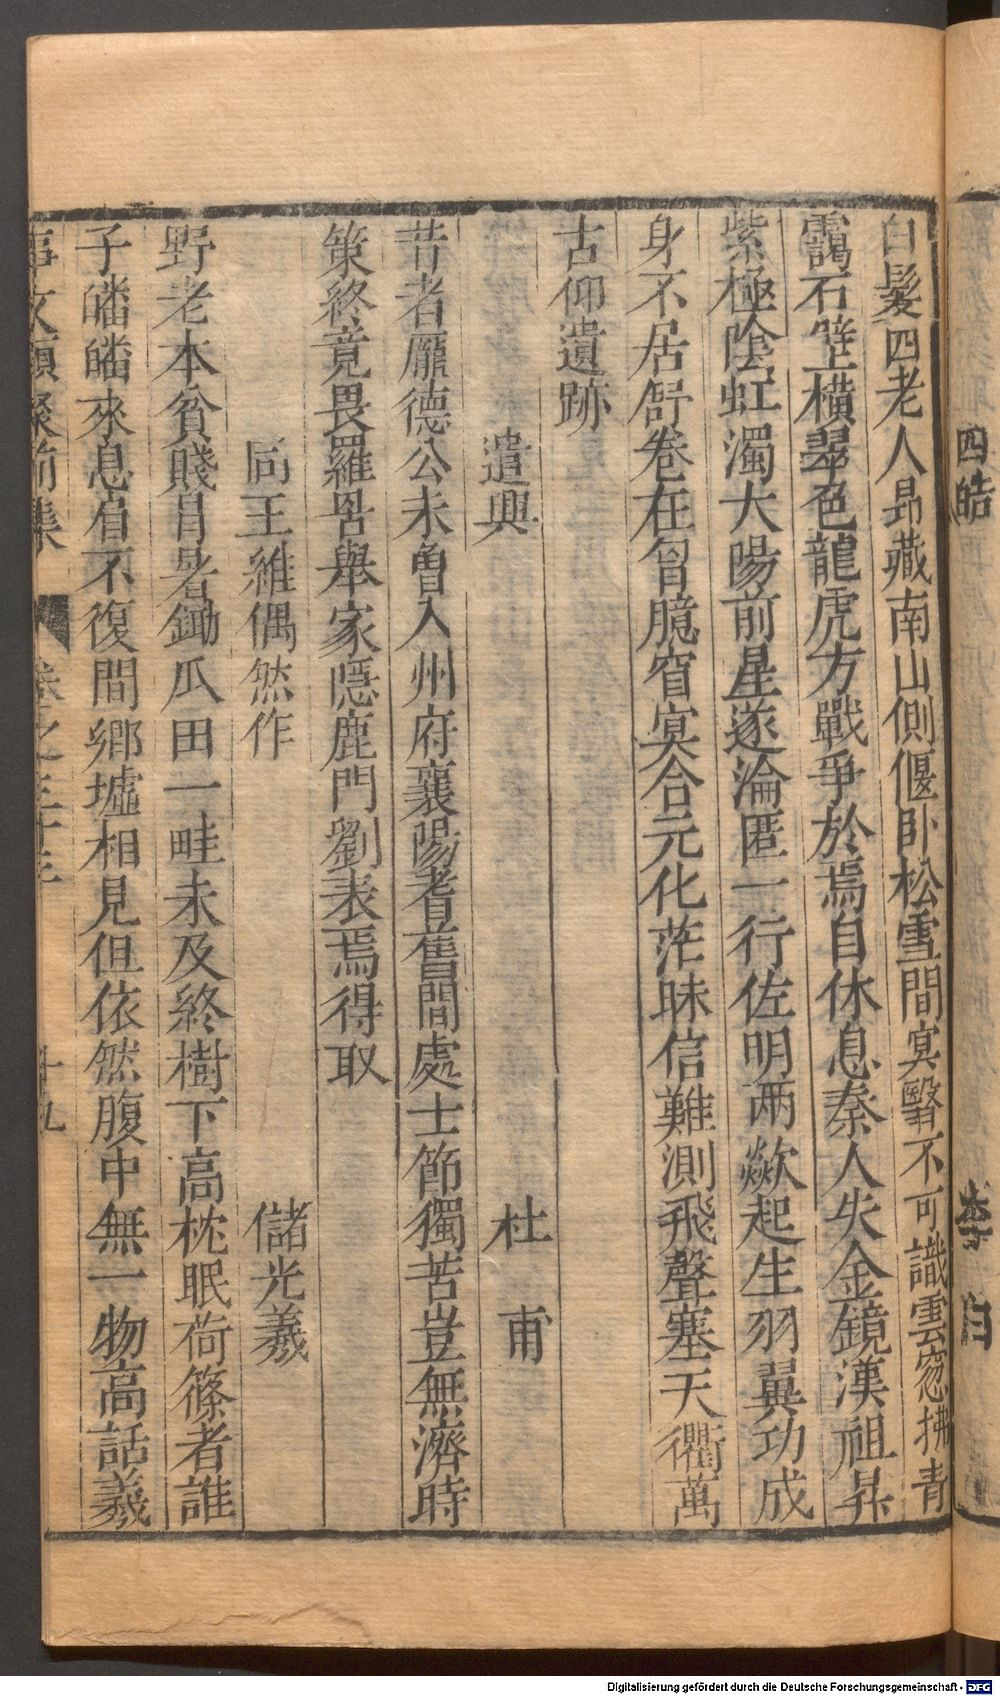 四皓　李白
白髮四老人昂藏南山側偃卧松雪間冥翳不可識雲窓拂青
靄石壁橫翠色龍虎方戰爭於焉自休息秦人失金鏡漢祖昇
紫極陰虹濁太陽前星遂淪匿一行佐明兩歘起生羽翼功成
身不居舒卷在胷臆窅冥合元化茫昧信難測飛聲塞天衢萬
古仰遺跡
遣興　杜甫
昔者龐德公未曾入州府襄陽耆舊間處士節獨苦豈無濟時
策終竟畏羅罟舉家隱鹿門劉表焉得取
同王維偶然作　儲光羲
野老本貧賤冒暑鋤瓜田一畦未及終樹下高枕眠荷篠者誰
子皤皤來息肩不復問鄉墟相見但依然腹中無一物高話羲
事文類聚前集　卷之三十三　十九
Digitalisierung gefördert durch die Deutsche Forschungsgemeinschaft - DFG